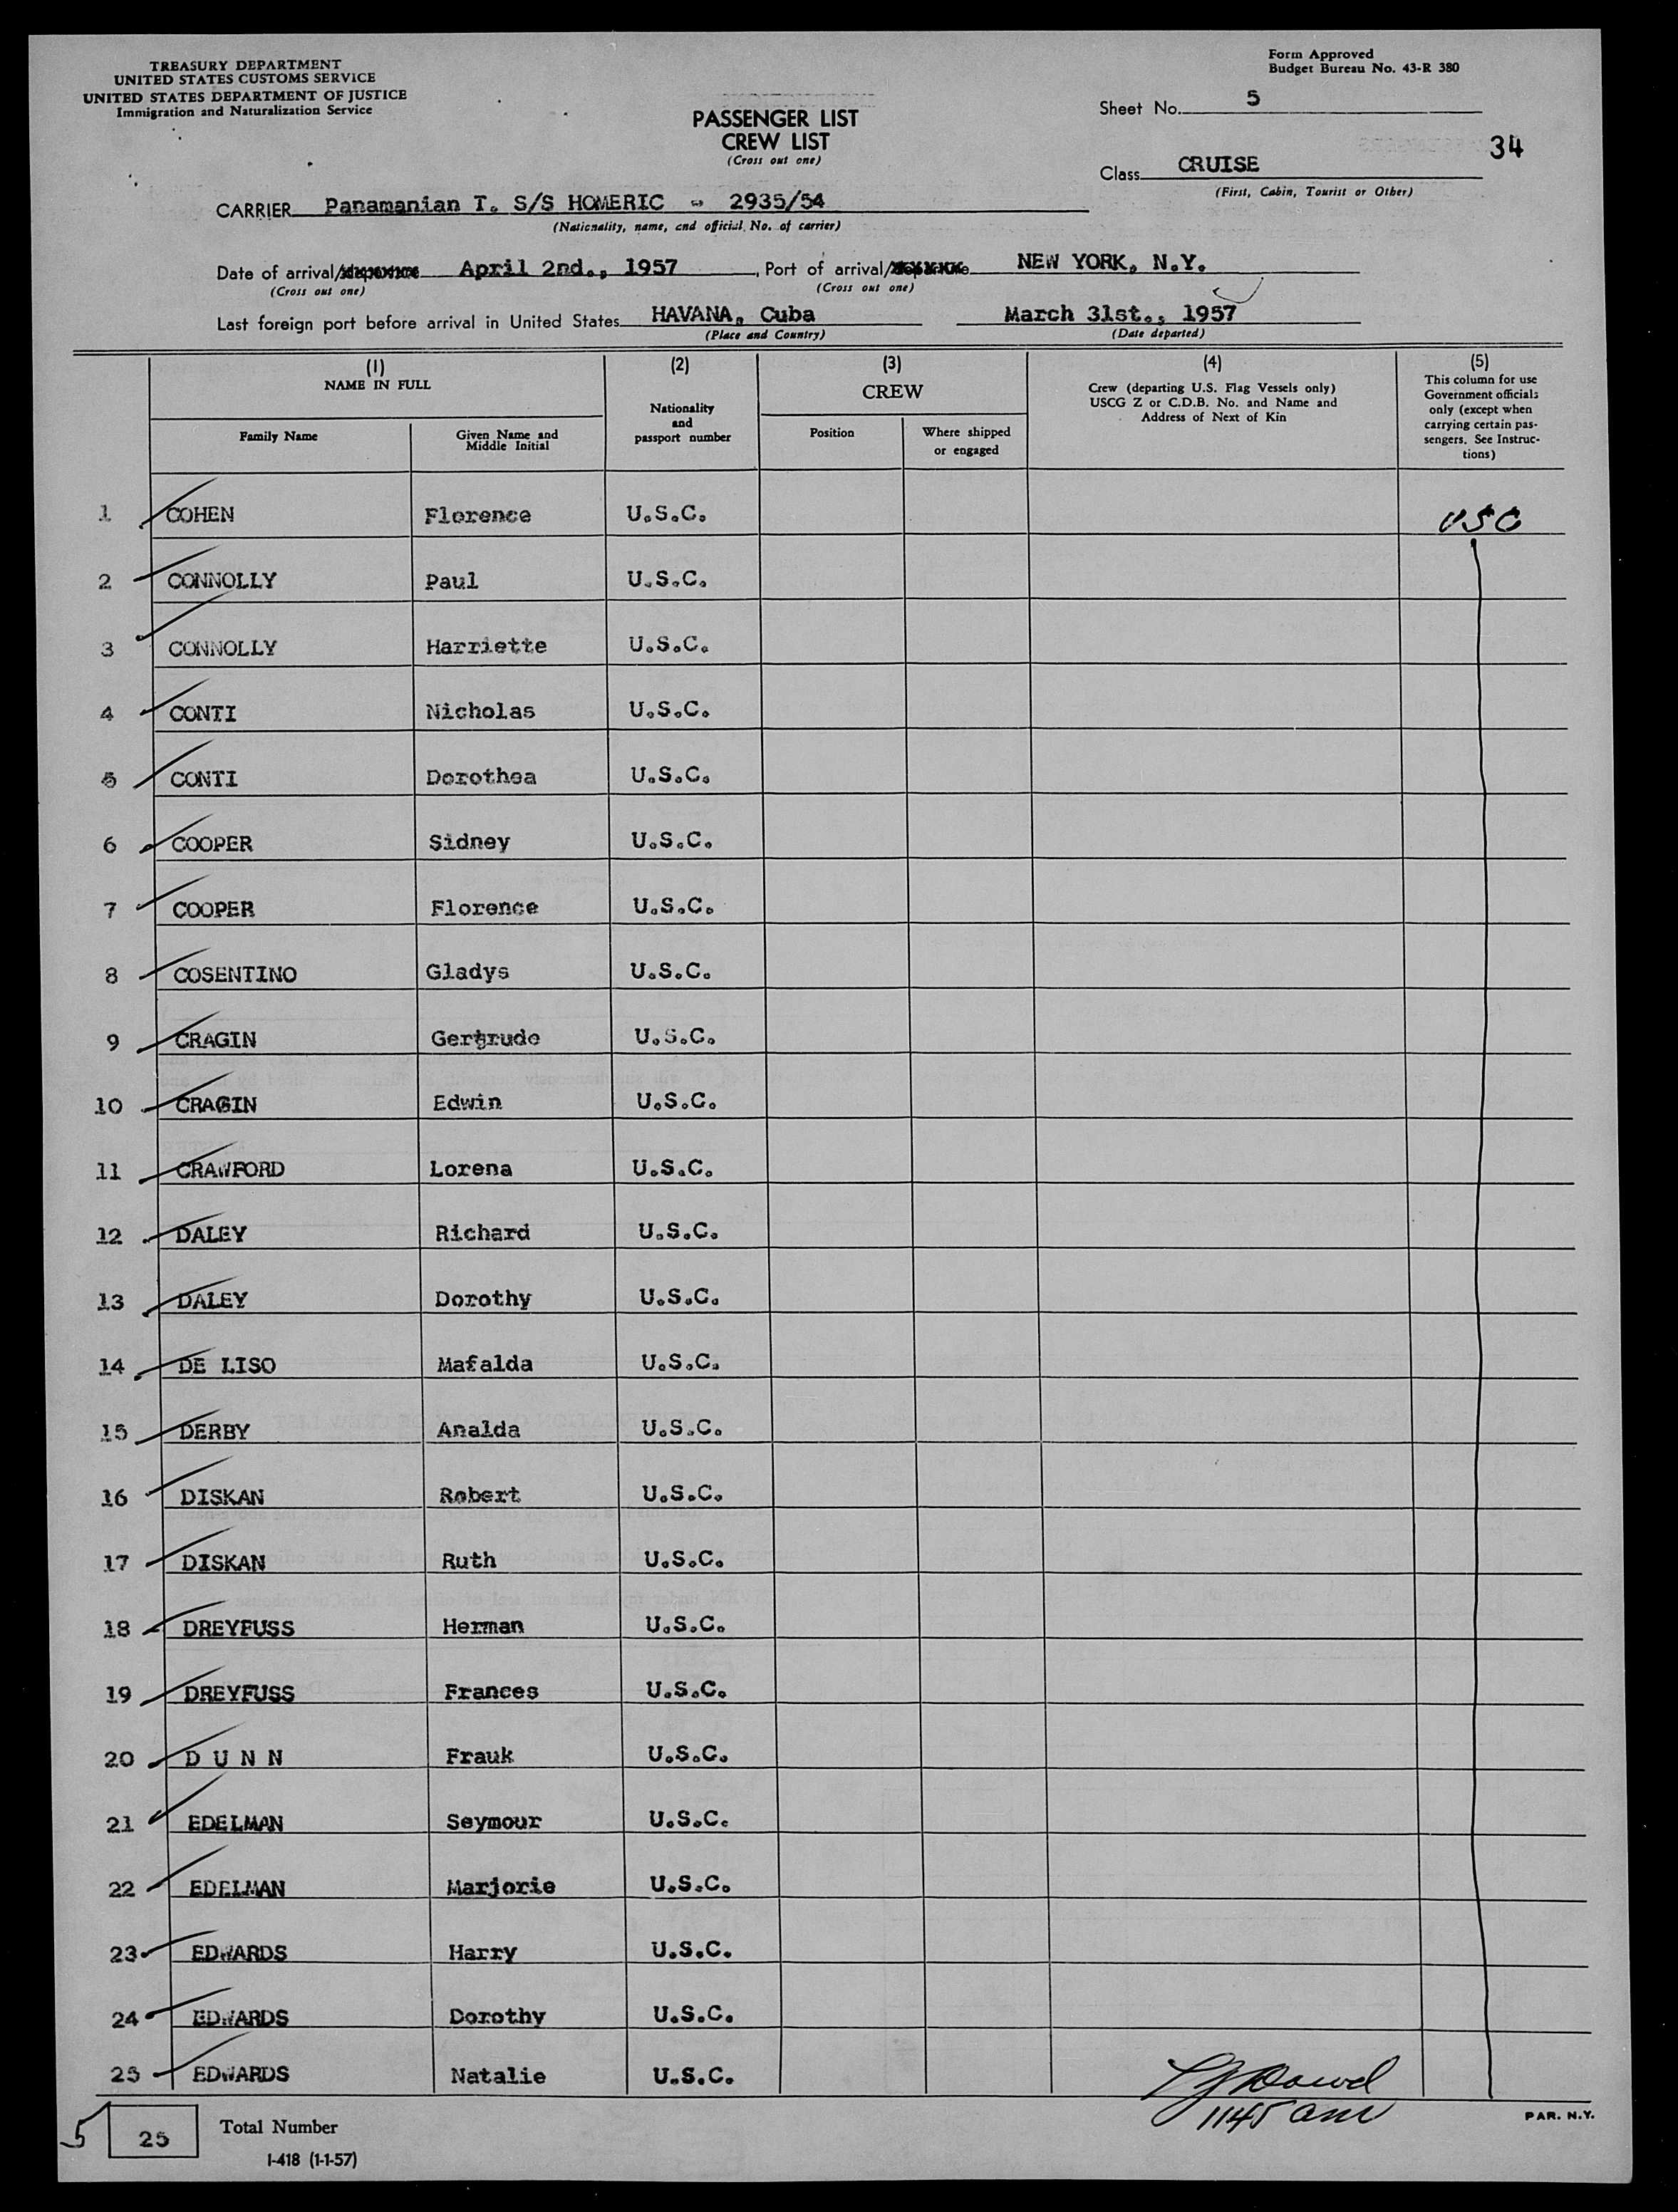 TREASURY DEPARTMENT
UNITED STATES CUSTOMS SERVICE
UNITED STATES DEPARTMENT OF JUSTICE
Immigration and Naturalization Service
Form Approved
Budget Bureau No. 43-R 380
PASSENGER LIST
CREW LIST
(Cross out one)
Sheet No. 5
34
Class CRUISE
(First, Cabin, Tourist or Other)
CARRIER Panamanian T. S/S HOMERIC - 2935/54
(Nationality, name, and official No. of carrier)
Date of arrival/ April 2nd., 1957, Port of arrival/ NEW YORK, N.Y.
(Cross out one) (Cross out one)
Last foreign port before arrival in United States HAVANA, Cuba March 31st., 1957
(Place and Country) (Date departed)
(1) (2) (3) (4) (5)
NAME IN FULL
Family Name
Given Name and Middle Initial
Nationality and passport number
CREW
Position
Where shipped or engaged
Crew (departing U.S. Flag Vessels only)
USCG Z or C.D.B. No. and Name and
Address of Next of Kin
This column for use
Government officials
only (except when
carrying certain pas-
sengers. See Instruc-
tions)
1 COHEN Florence U.S.C. USC
2 CONNOLLY Paul U.S.C.
3 CONNOLLY Harriette U.S.C.
4 CONTI Nicholas U.S.C.
5 CONTI Dorothea U.S.C.
6 COOPER Sidney U.S.C.
7 COOPER Florence U.S.C.
8 COSENTINO Gladys U.S.C.
9 CRAGIN Gertrude U.S.C.
10 CRAGIN Edwin U.S.C.
11 CRAWFORD Lorena U.S.C.
12 DALEY Richard U.S.C.
13 DALEY Dorothy U.S.C.
14 DE LISO Mafalda U.S.C.
15 DERBY Analda U.S.C.
16 DISKAN Robert U.S.C.
17 DISKAN Ruth U.S.C.
18 DREYFUSS Herman U.S.C.
19 DREYFUSS Frances U.S.C.
20 D U N N Frauk U.S.C.
21 EDELMAN Seymour U.S.C.
22 EDELMAN Marjorie U.S.C.
23 EDWARDS Harry U.S.C.
24 EDWARDS Dorothy U.S.C.
25 EDWARDS Natalie U.S.C.
1145 am
5 25 Total Number
PAR. N.Y.
I-418 (1-1-57)